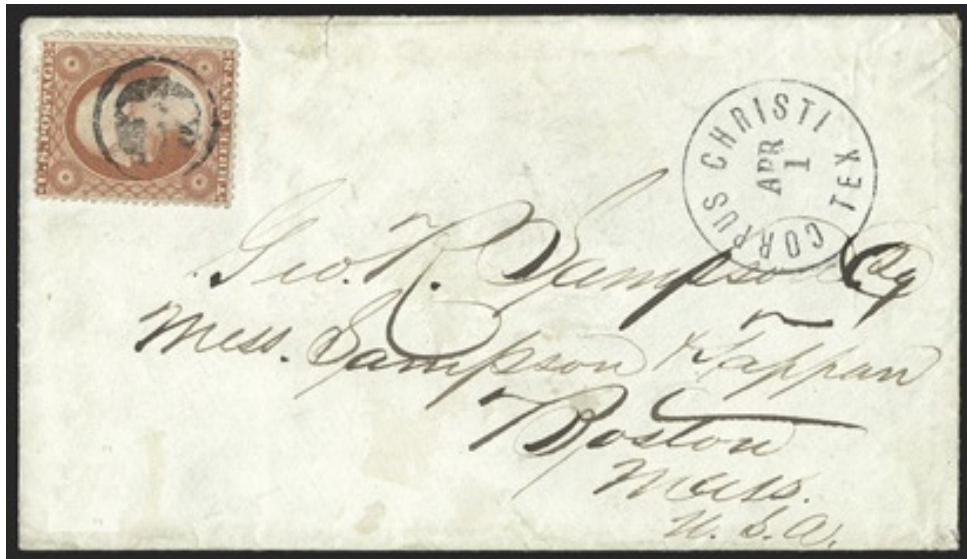 U.S. POSTAGE
THREE CENTS
CORPUS CHRISTI TEX
APR
1
Geo. R. Sampson Esq
Mess. Sampson & Tappan
Boston
Mass.
U.S.A.